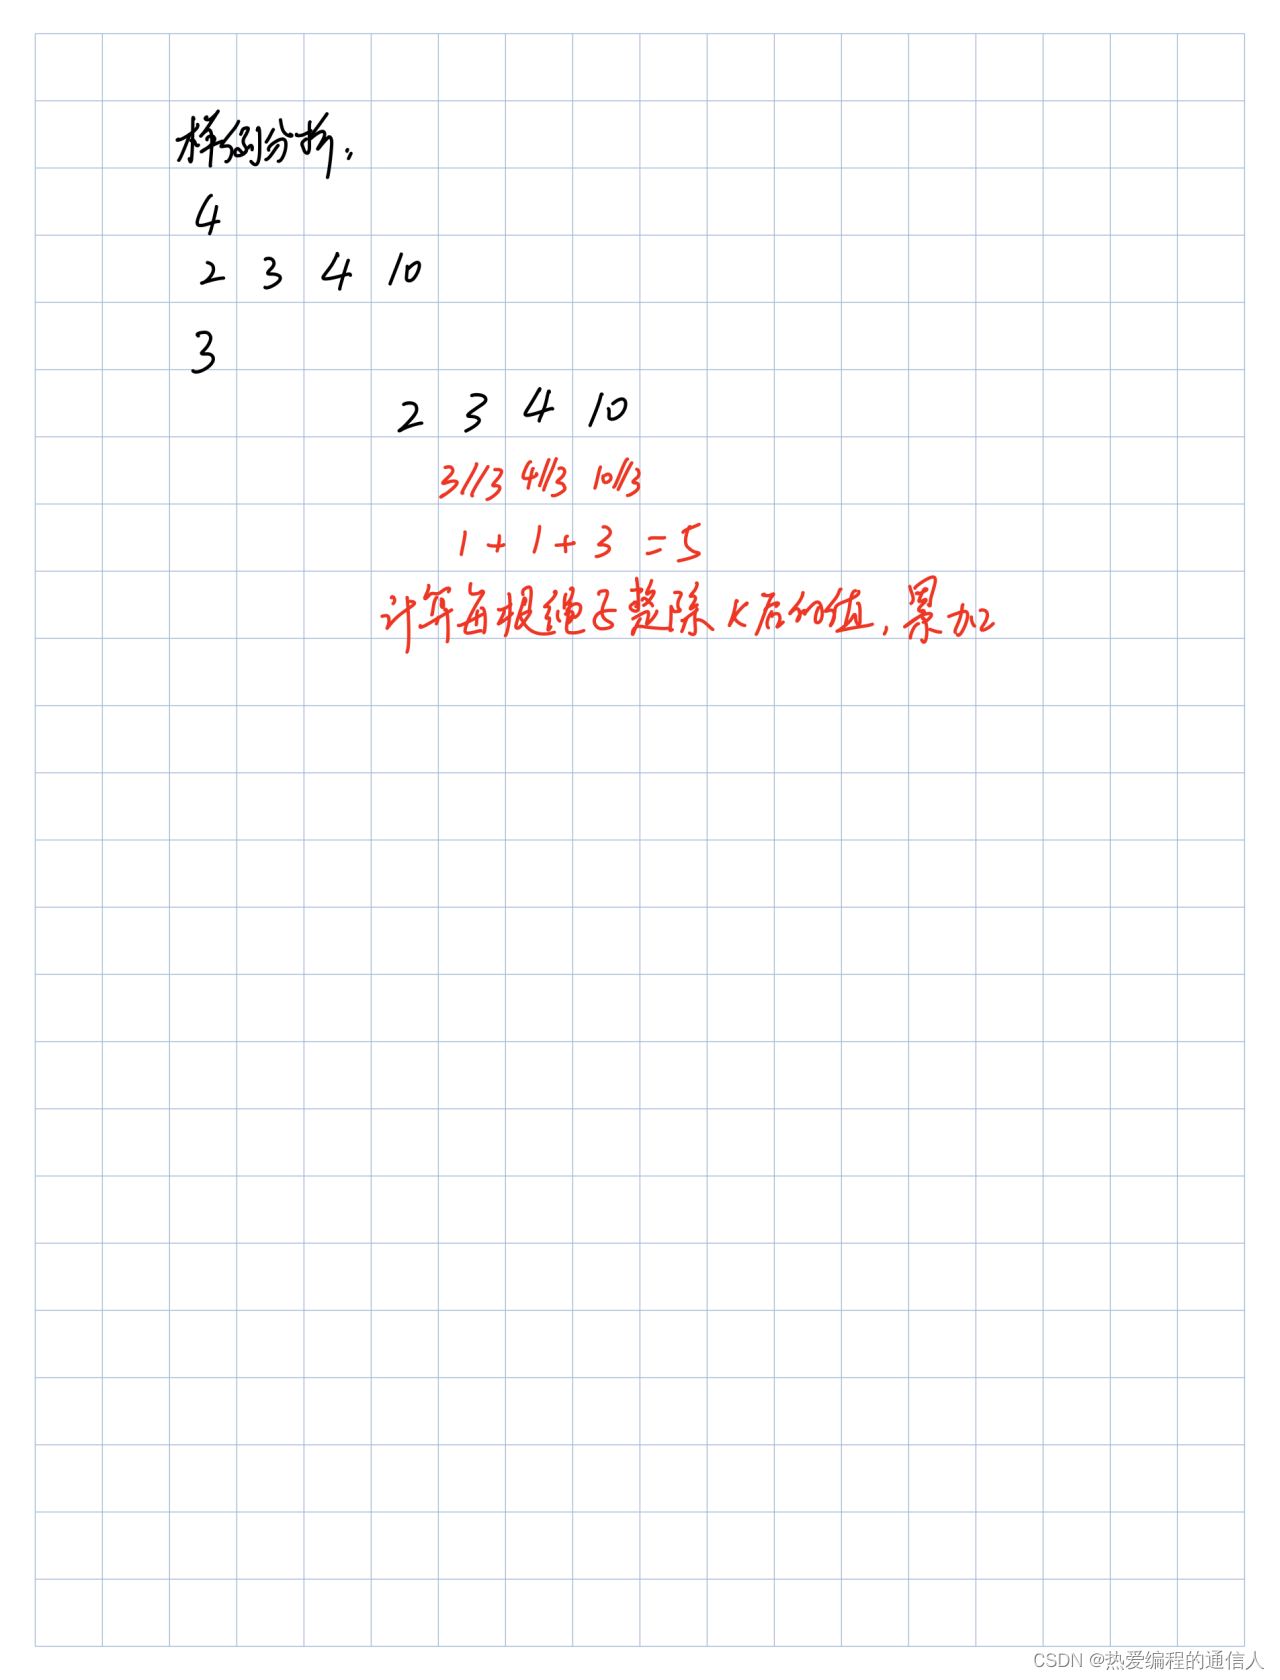 样例分析:
4
2 3 4 10
3
2 3 4 10
3//3 4//3 10//3
1 + 1 + 3 = 5
计算每根绳子整除K后的值,累加
CSDN @热爱编程的通信人